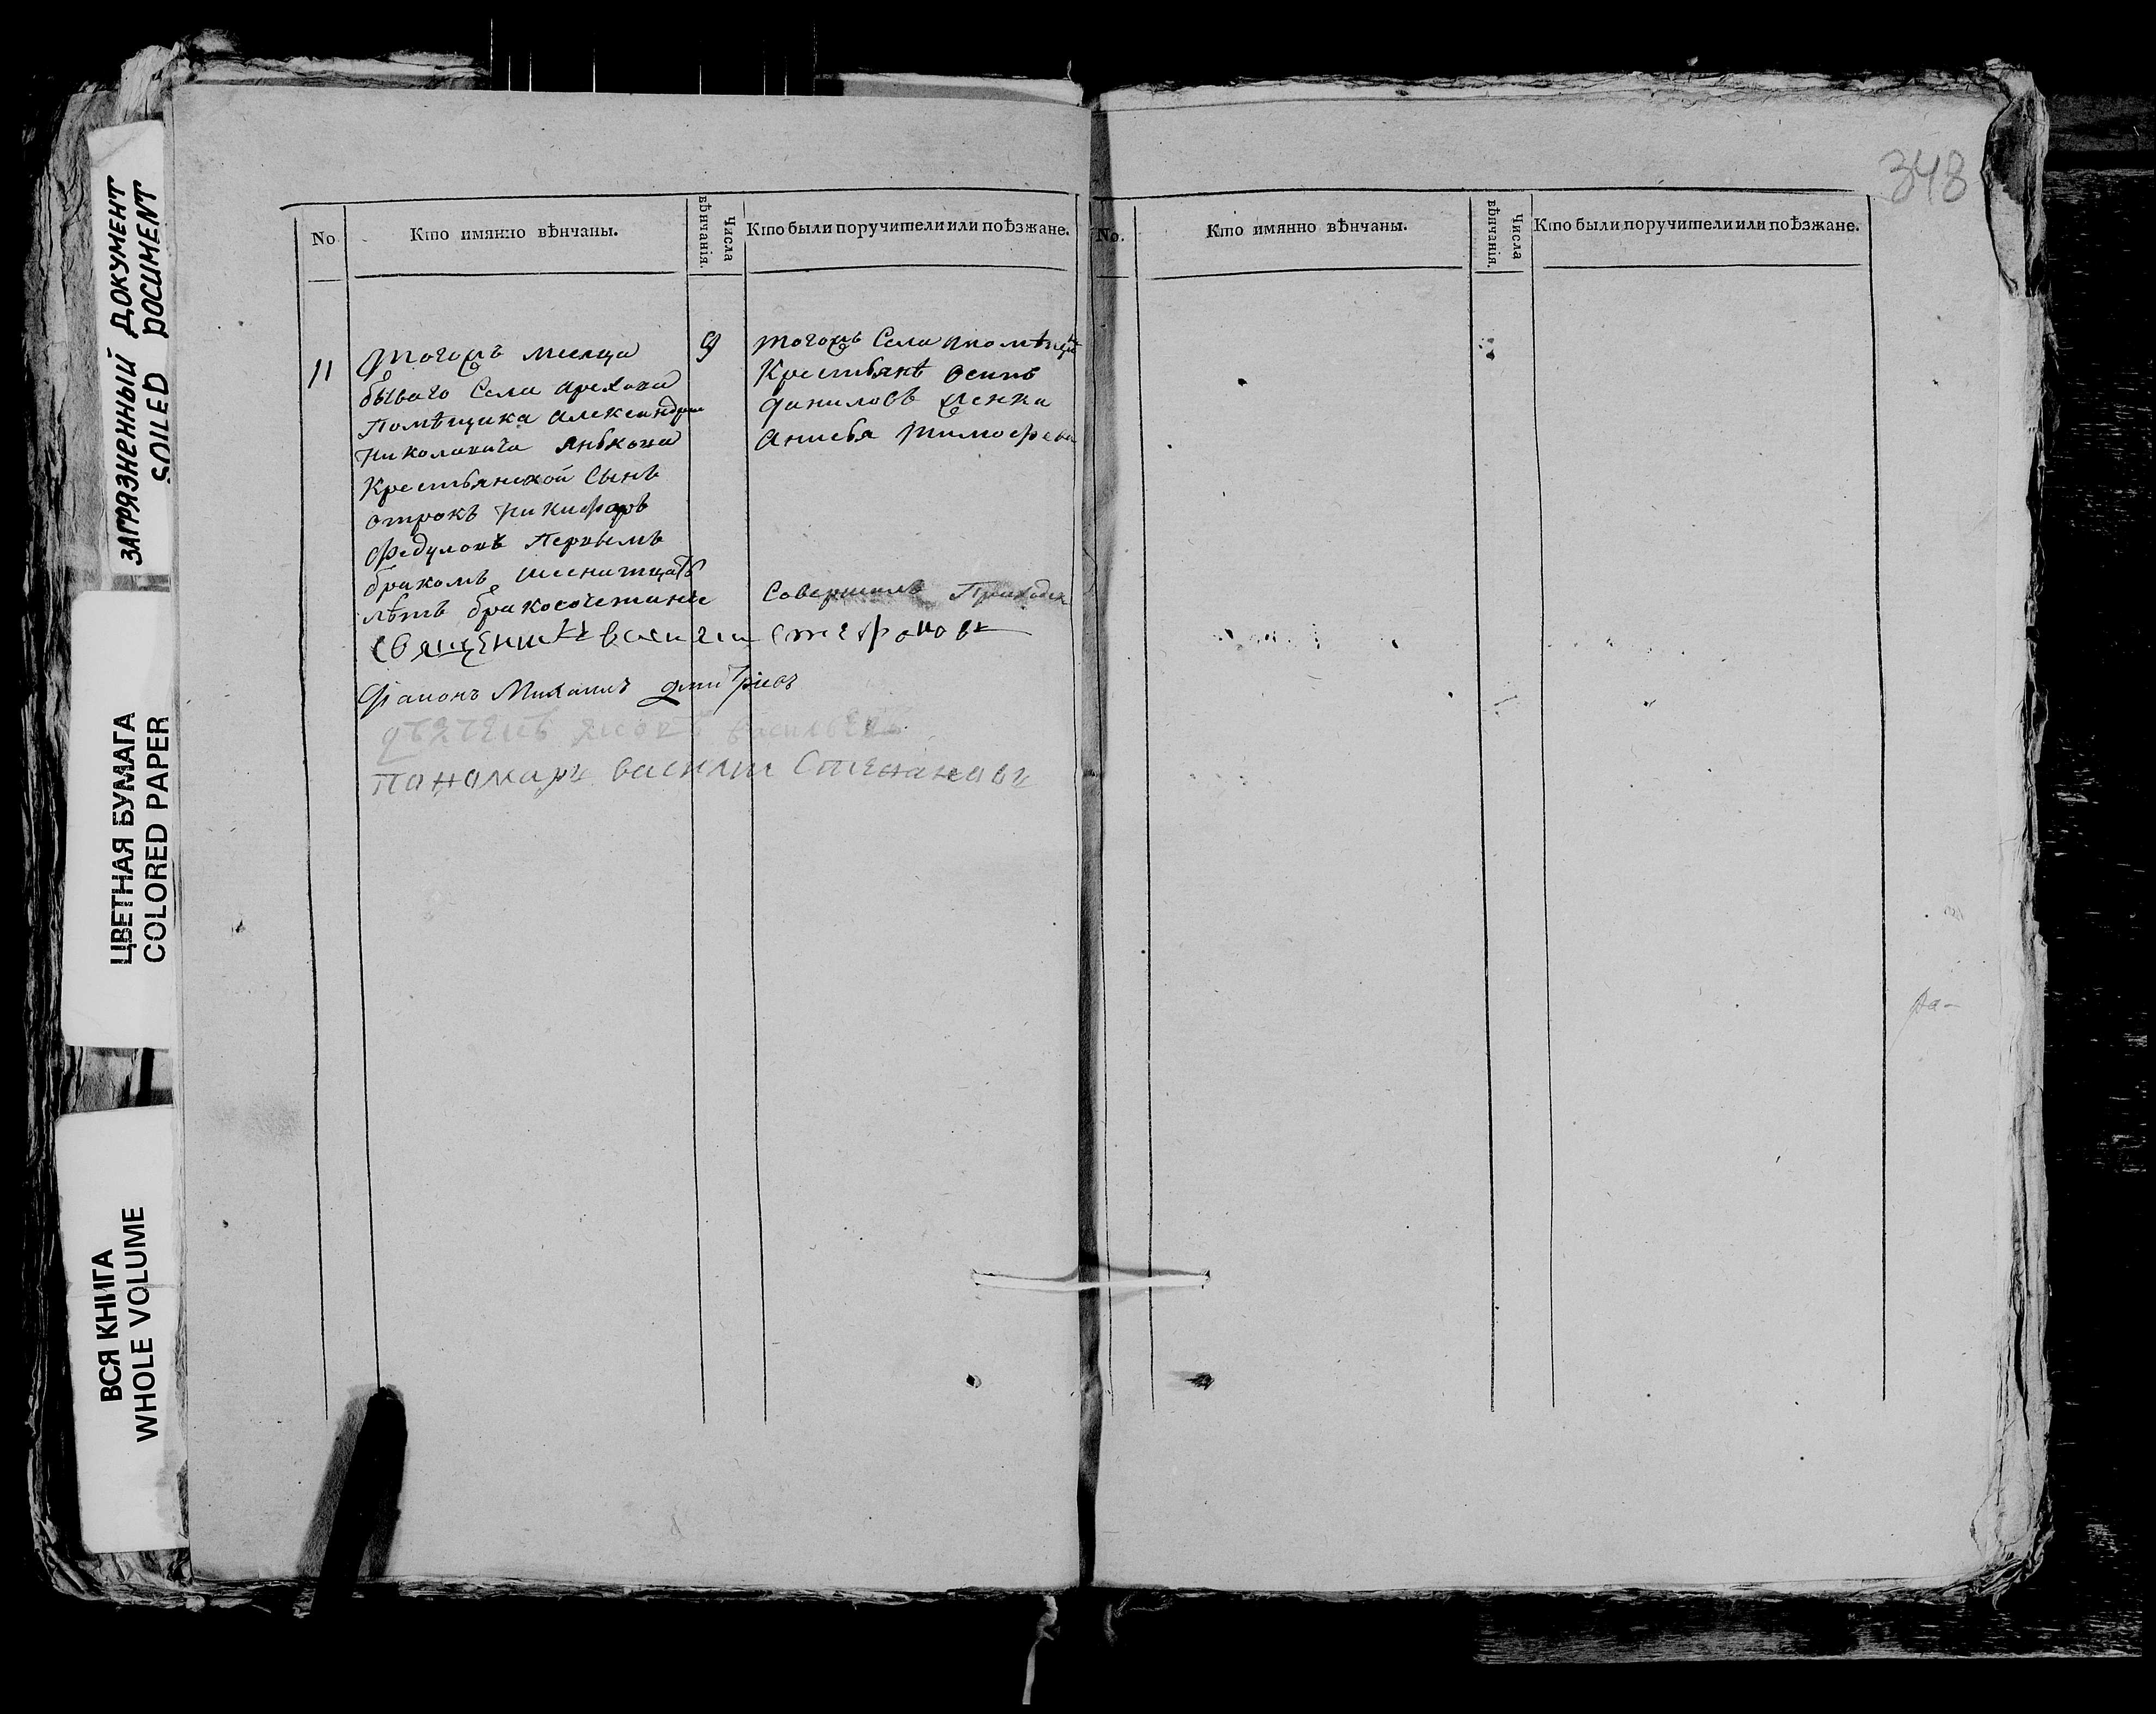 ЗАГРЯЗНЕННЫЙ ДОКУМЕНТ
SOILED DOCUMENT
ЦВЕТНАЯ БУМАГА
COLORED PAPER
ВСЯ КНИГА
WHOLE VOLUME
No
Кто имянно вѣнчаны.
Числа вѣнчанія.
Кто были поручители или поѣзжане.
11
тогожъ месеца
Села
Помѣщика александра
николаивича янькова
Крестьянской Сынъ
отрокъ никифоръ
федуловъ Первымъ
бракомъ
лѣтъ бракосочетание
9
тогожъ Села
Крестьянѣ осипъ
даниловъ женка
анисья тимофева
Совершилъ
священикъ василии стефановъ
Диаконъ Михаилъ дмитриевъ
Пономарь василии Степановъ
348
No.
Кто имянно вѣнчаны.
Числа вѣнчанія.
Кто были поручители или поѣзжане.